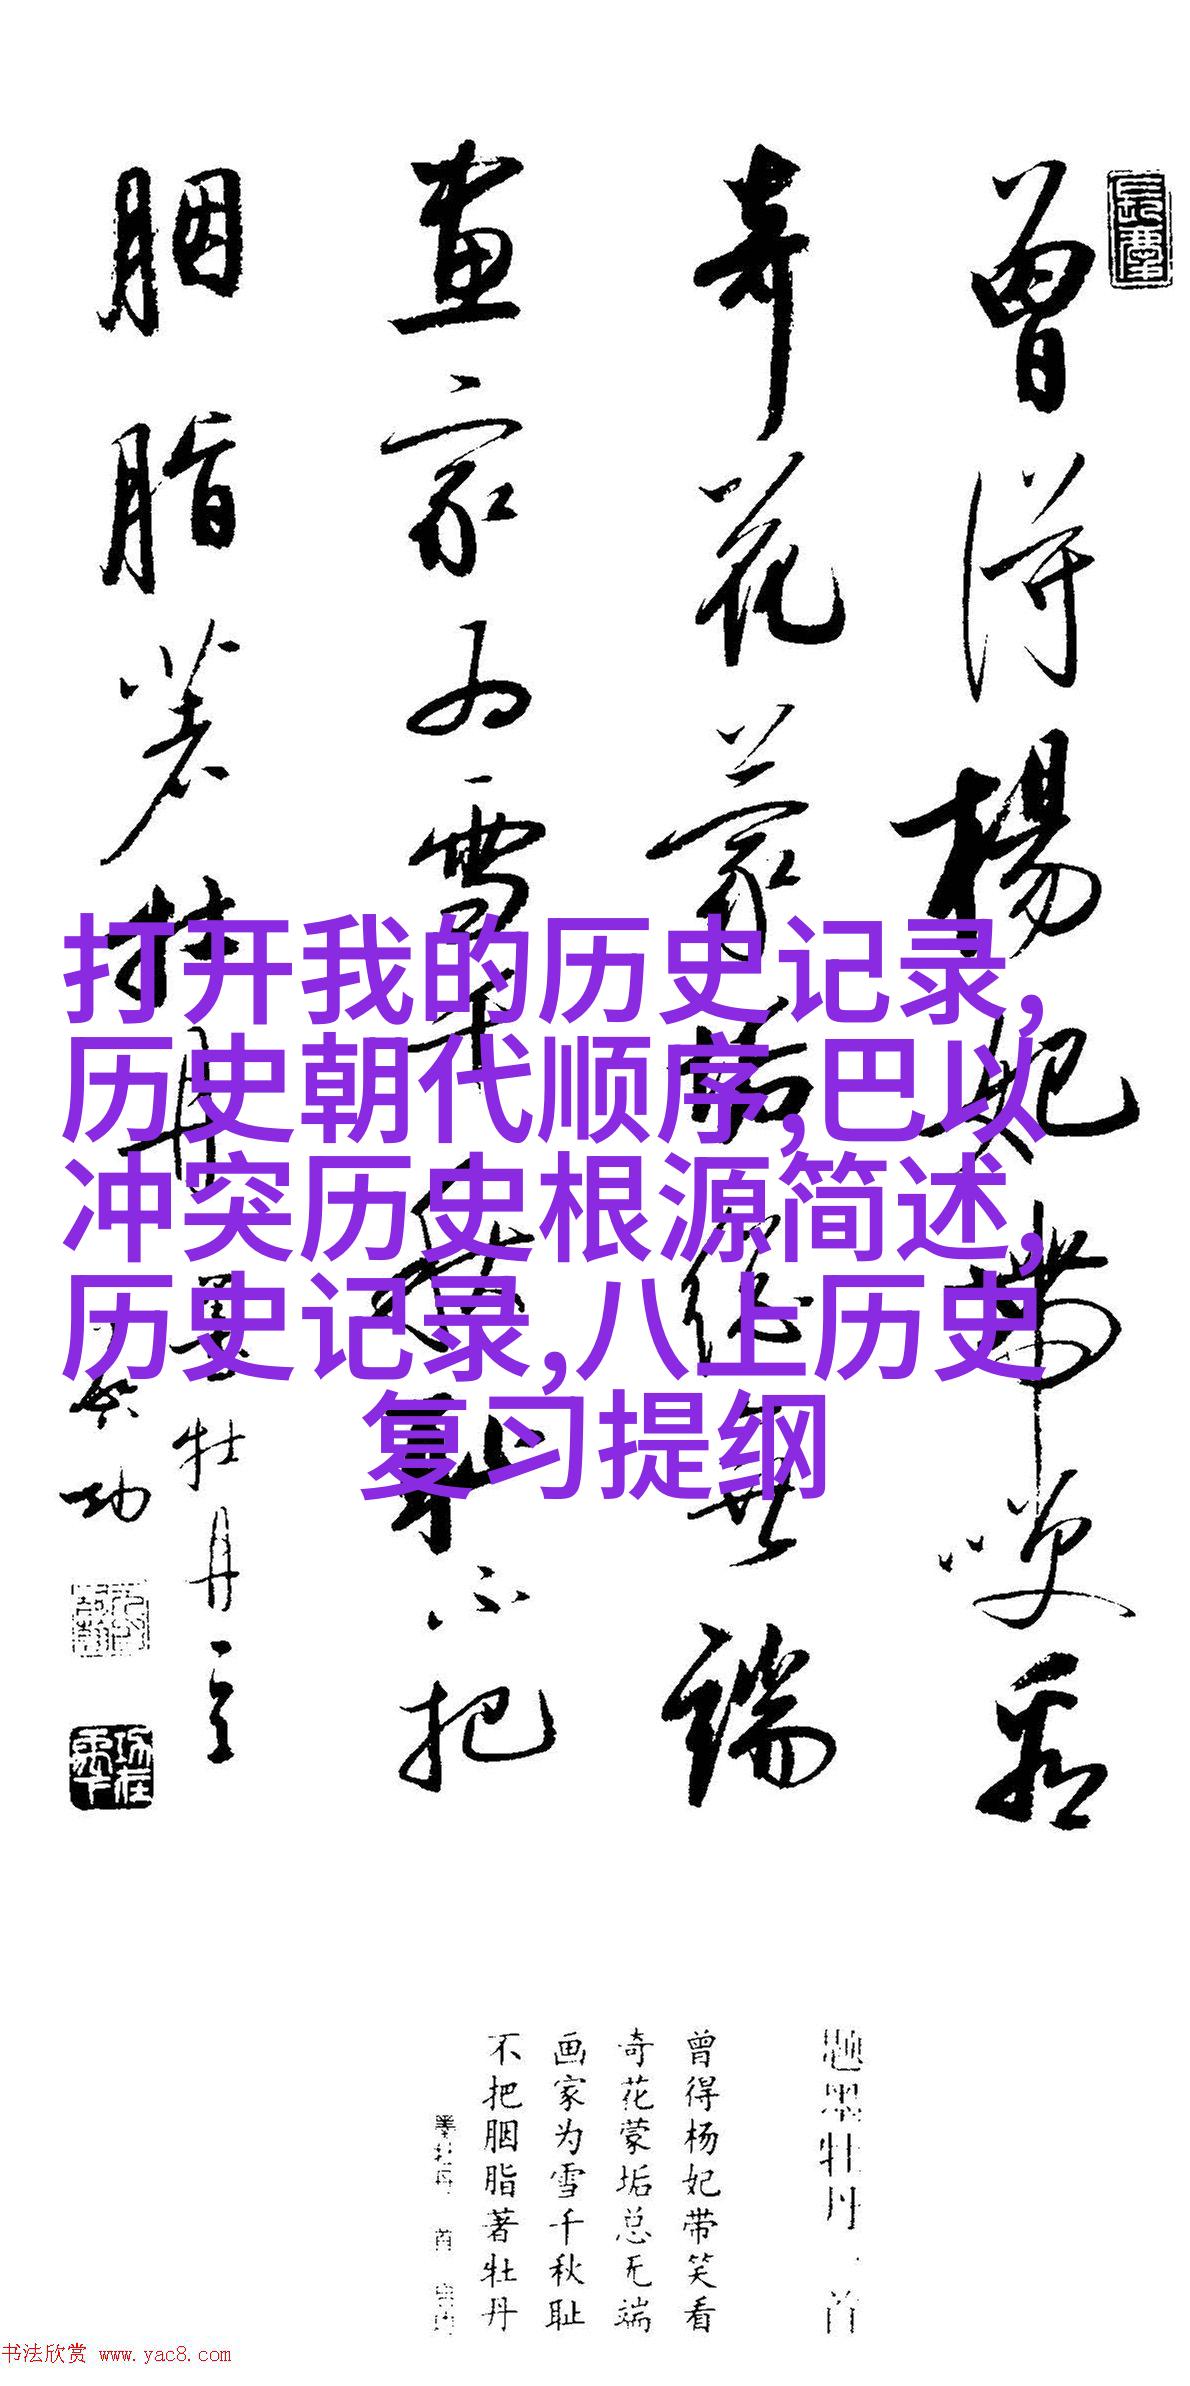 曾得楊妃帶笑看
奇花蒙垢總無端
畫家为雪千秋耻
不把
胭脂著牡丹
墨牡丹一首
启功
打开我的历史记录,
历史朝代顺序,巴以
冲突历史根源简述,
历史记录,八上历史
复习提纲
题墨牡丹一首
曾得杨妃带笑看
奇花蒙垢总无端
画家为雪千秋耻
不把胭脂著牡丹
书法欣赏 www.yac8.com